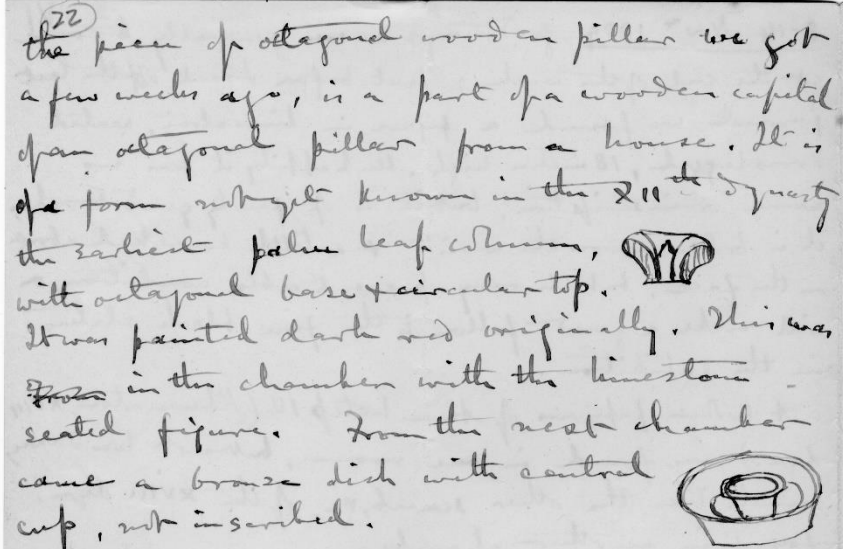 22
the piece of octagonal wooden pillar we got
a few weeks ago, is a part of a wooden capital
of an octagonal pillar from a house. It is
of a form not yet known in the XIIth dynasty
the earliest palm leaf column,
with octagonal base & circular top.
It was painted dark red originally. This was
From in the chamber with the limestone
seated figure. From the next chamber
came a bronze dish with central
cup, not inscribed.